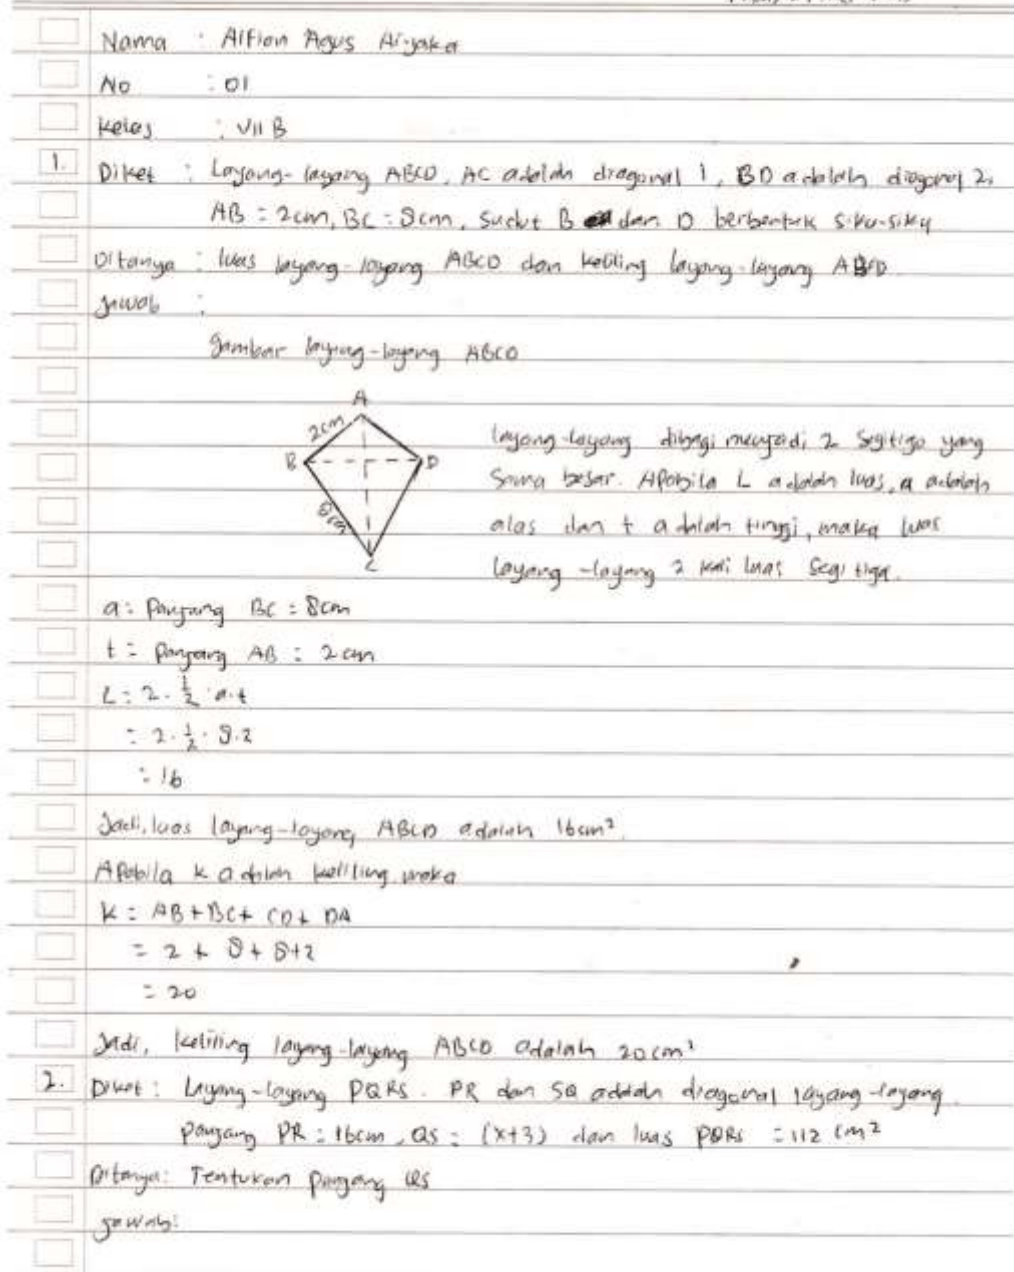 Nama : Alfian Agus Aryaka
No : 01
Kelas : VII B
1. Diket : Layang-layang ABCD, AC adalah diagonal 1, BD adalah diagonal 2.
AB = 2cm, BC = 8cm, Sudut B dan D berbentuk siku-siku
Ditanya : luas layang-layang ABCD dan keliling layang-layang ABCD
Jawab :
Gambar layang-layang ABCD
A
2cm
B
D
8cm
C
layang-layang dibagi menjadi 2 segitiga yang
sama besar. Apabila L adalah luas, a adalah
alas dan t adalah tinggi, maka luas
layang-layang 2 kali luas segitiga.
a = panjang BC = 8cm
t = panjang AB = 2cm
L = 2 . 1/2 . a.t
= 2 . 1/2 . 8.2
= 16
Jadi, luas layang-layang ABCD adalah 16cm²
Apabila k adalah keliling maka
K = AB+BC+ CD+ DA
= 2 + 8+ 8+2
= 20
Jadi, keliling layang-layang ABCD adalah 20cm²
2. Diket : Layang-layang PQRS. PR dan SQ adalah diagonal layang-layang.
panjang PR = 16cm, QS = (x+3) dan luas PQRS = 112 cm²
Ditanya: Tentukan panjang QS
Jawab: